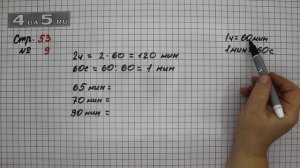 4АРОК5
Стр. 53
№ 9
1ч = 60 мин
1 мин = 60с
2ч = 2 · 60 = 120 мин
60с = 60 : 60 = 1 мин
65 мин =
70 мин =
90 мин =